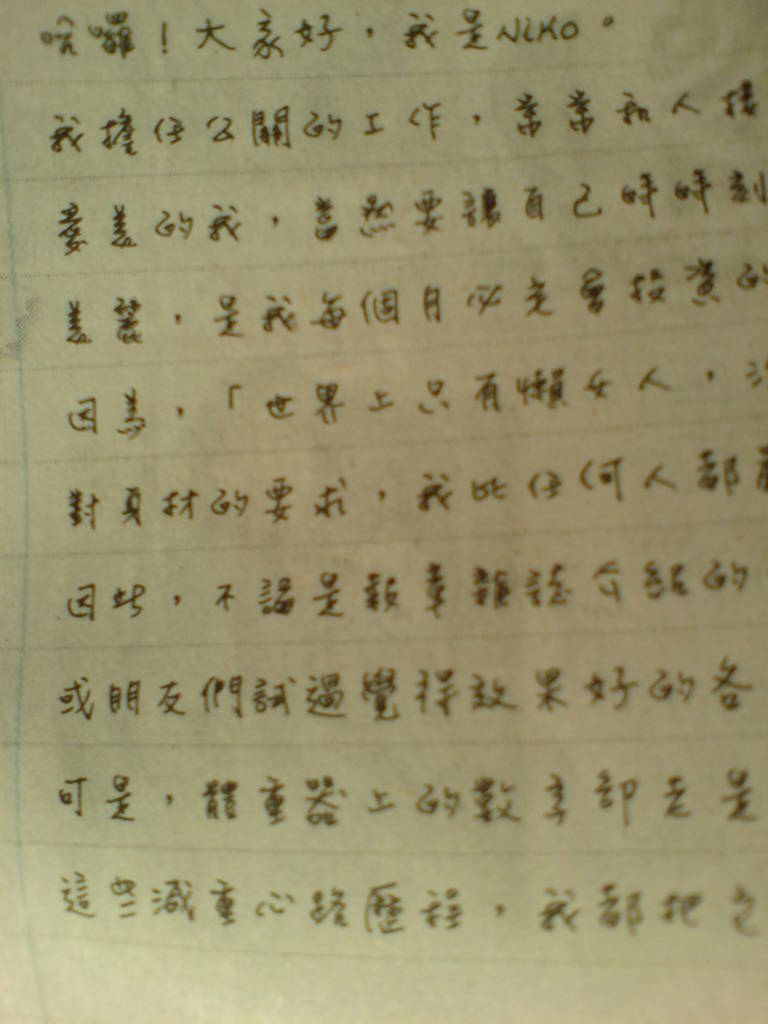 哈囉！大家好，我是NiKO。
我擔任公關的工作，常常和人接
愛美的我，當然要讓自己時時刻
美麗，是我每個月必定會投資的
因為，「世界上只有懶女人，沒
對身材的要求，我比任何人都
因此，不論是報章雜誌介紹的
或朋友們試過覺得效果好的各
可是，體重器上的數字卻老是
這些減重心路歷程，我都把它